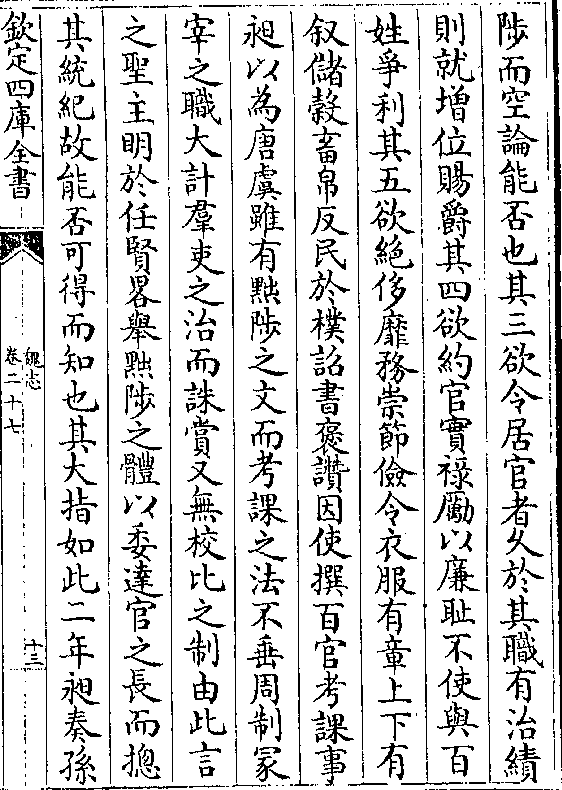 陟而空論能否也其三欲令居官者久於其職有治績
則就增位賜爵其四欲約官實祿勵以廉耻不使與百
姓爭利其五欲絶侈靡務崇節儉令衣服有章上下有
叙儲穀畜帛反民於樸詔書褒讚因使撰百官考課事
昶以為唐虞雖有黜陟之文而考課之法不垂周制冡
宰之職大計羣吏之治而誅賞又無校比之制由此言
之聖主明於任賢畧舉黜陟之體以委達官之長而摠
其統紀故能否可得而知也其大指如此二年昶奏孫
欽定四庫全書
魏志
卷二十七
十三